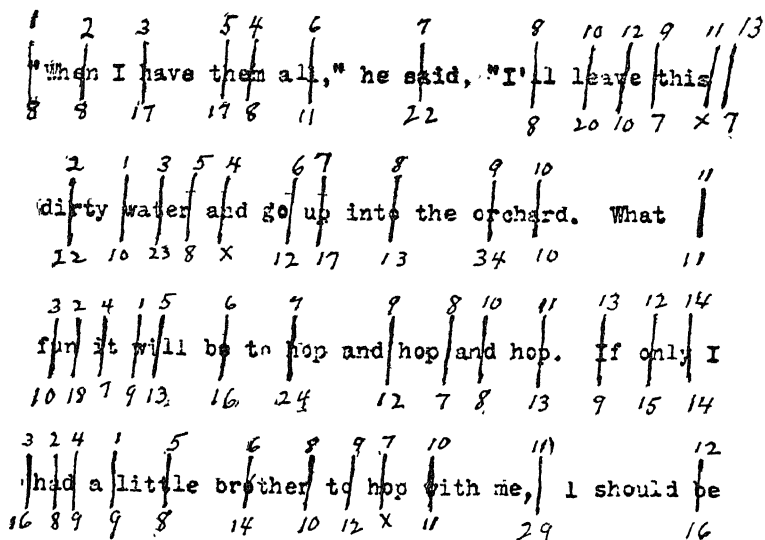 1 2 3 5 4 6 7 8 10 12 9 11 13
"When I have them all," he said, "I'll leave this
8 8 17 19 8 11 22 8 20 10 7 x 7
2 1 3 5 4 6 7 8 9 10 11
dirty water and go up into the orchard. What
12 10 23 8 x 12 17 13 34 10 11
3 2 4 1 5 6 7 9 8 10 11 13 12 14
fun it will be to hop and hop and hop. If only I
10 18 7 9 13 16 24 12 7 8 13 9 15 14
3 2 4 1 5 6 8 9 7 10 11 12
had a little brother to hop with me, I should be
16 8 9 9 8 14 10 12 x 11 29 16